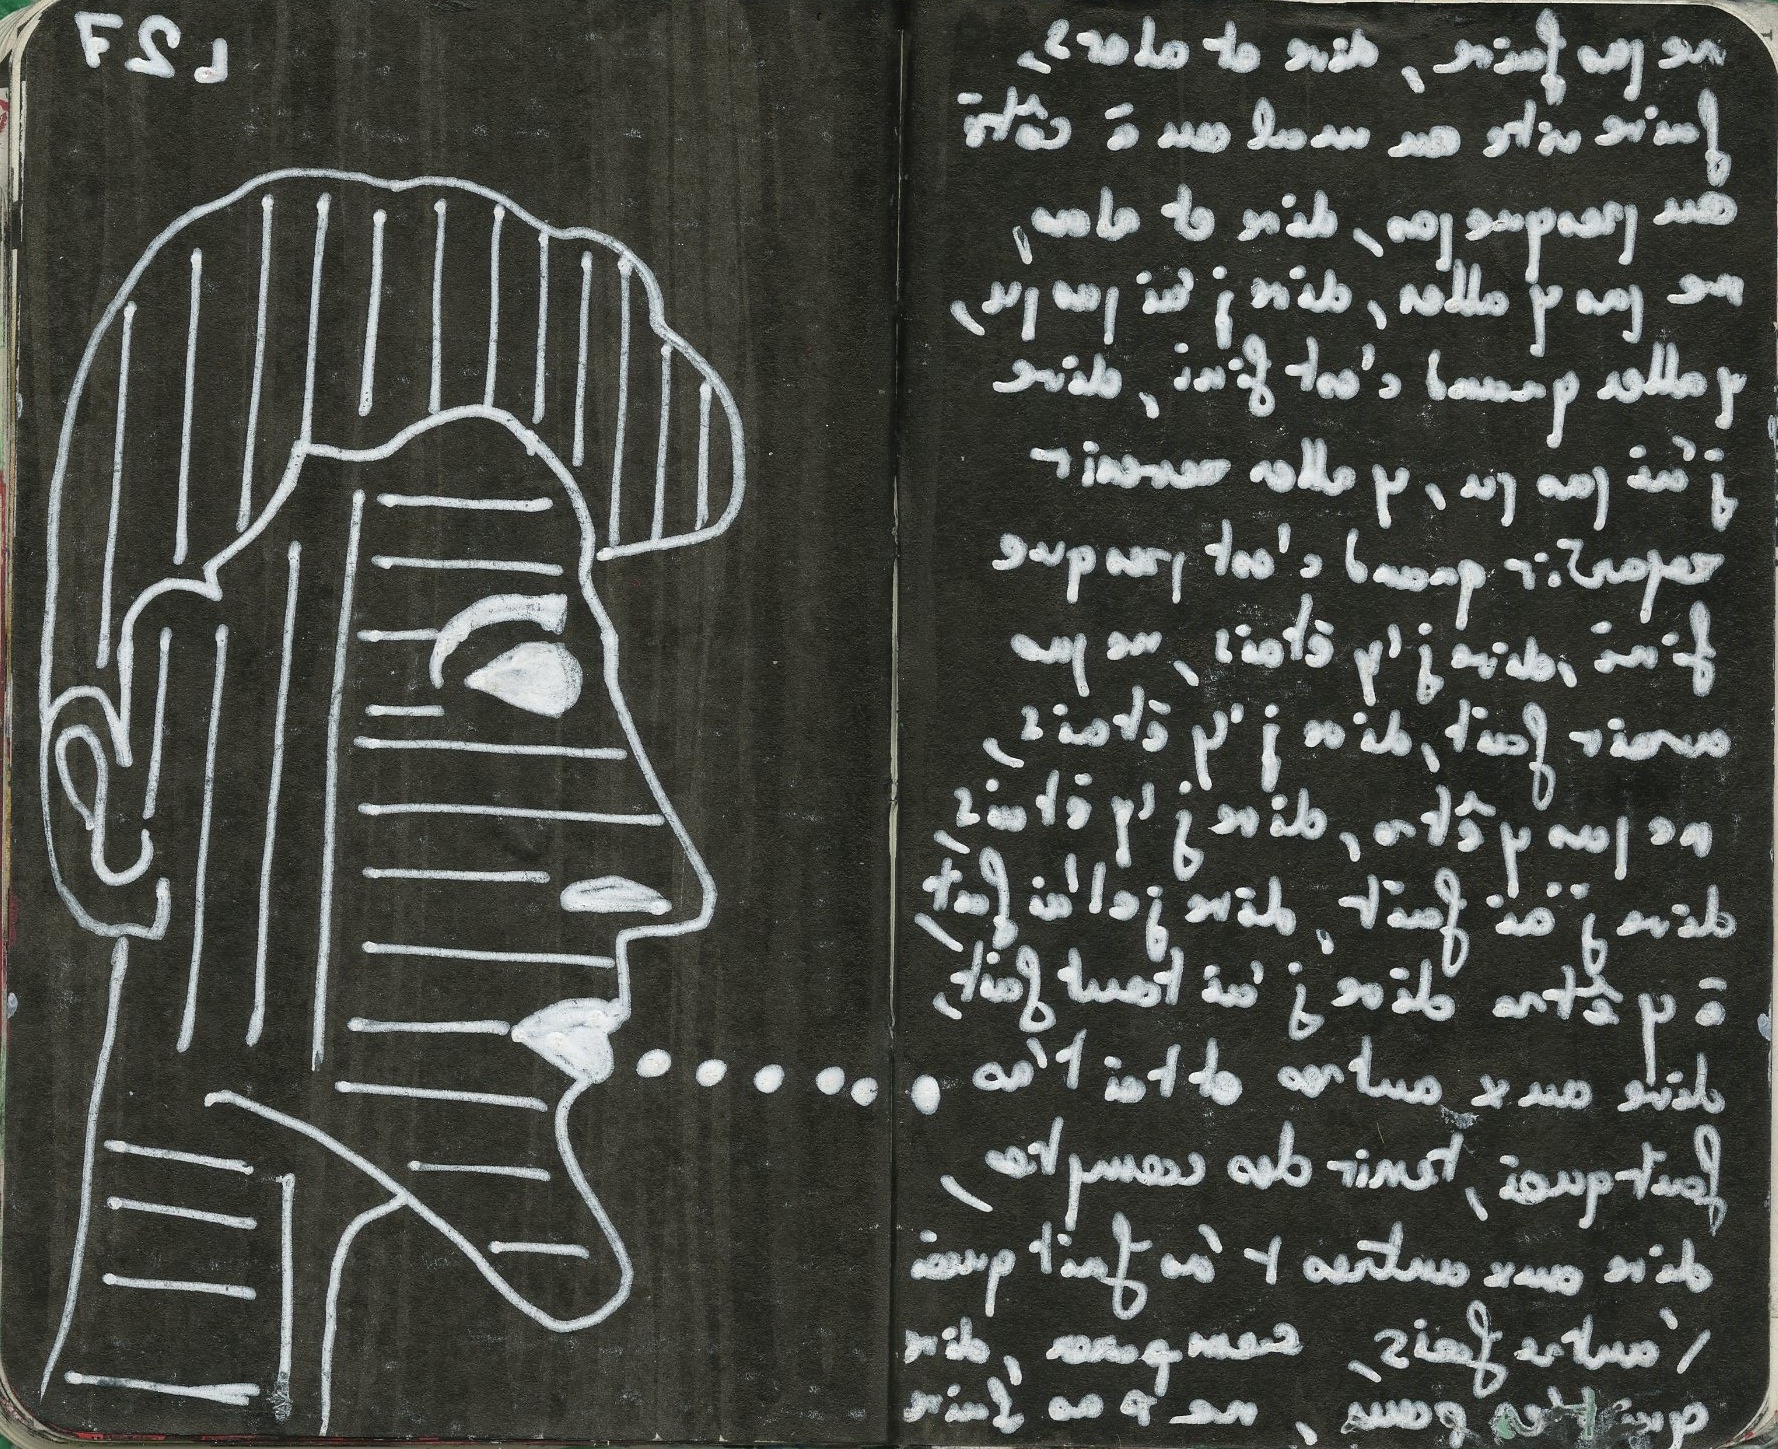 ne pas faire, dire et alors,
faire vite ou mal ou à côté
ou presque pas, dire et alors,
ne pas y aller, dire j'ai pas pu,
y aller quand c'est fini, dire
j'ai pas pu, y aller revenir
repartir quand c'est presque
fini, dire j'y étais, ne pas
avoir fait, dire j'y étais,
ne pas y être, dire j'y étais,
dire j'ai fait, dire je l'ai fait,
à y être dire j'ai tout fait,
dire aux autres et toi t'as
fait quoi, tenir des comptes,
dire aux autres t'as fait quoi
l'autre fois, compare, dire
qui t'es pour, ne pas faire
L27